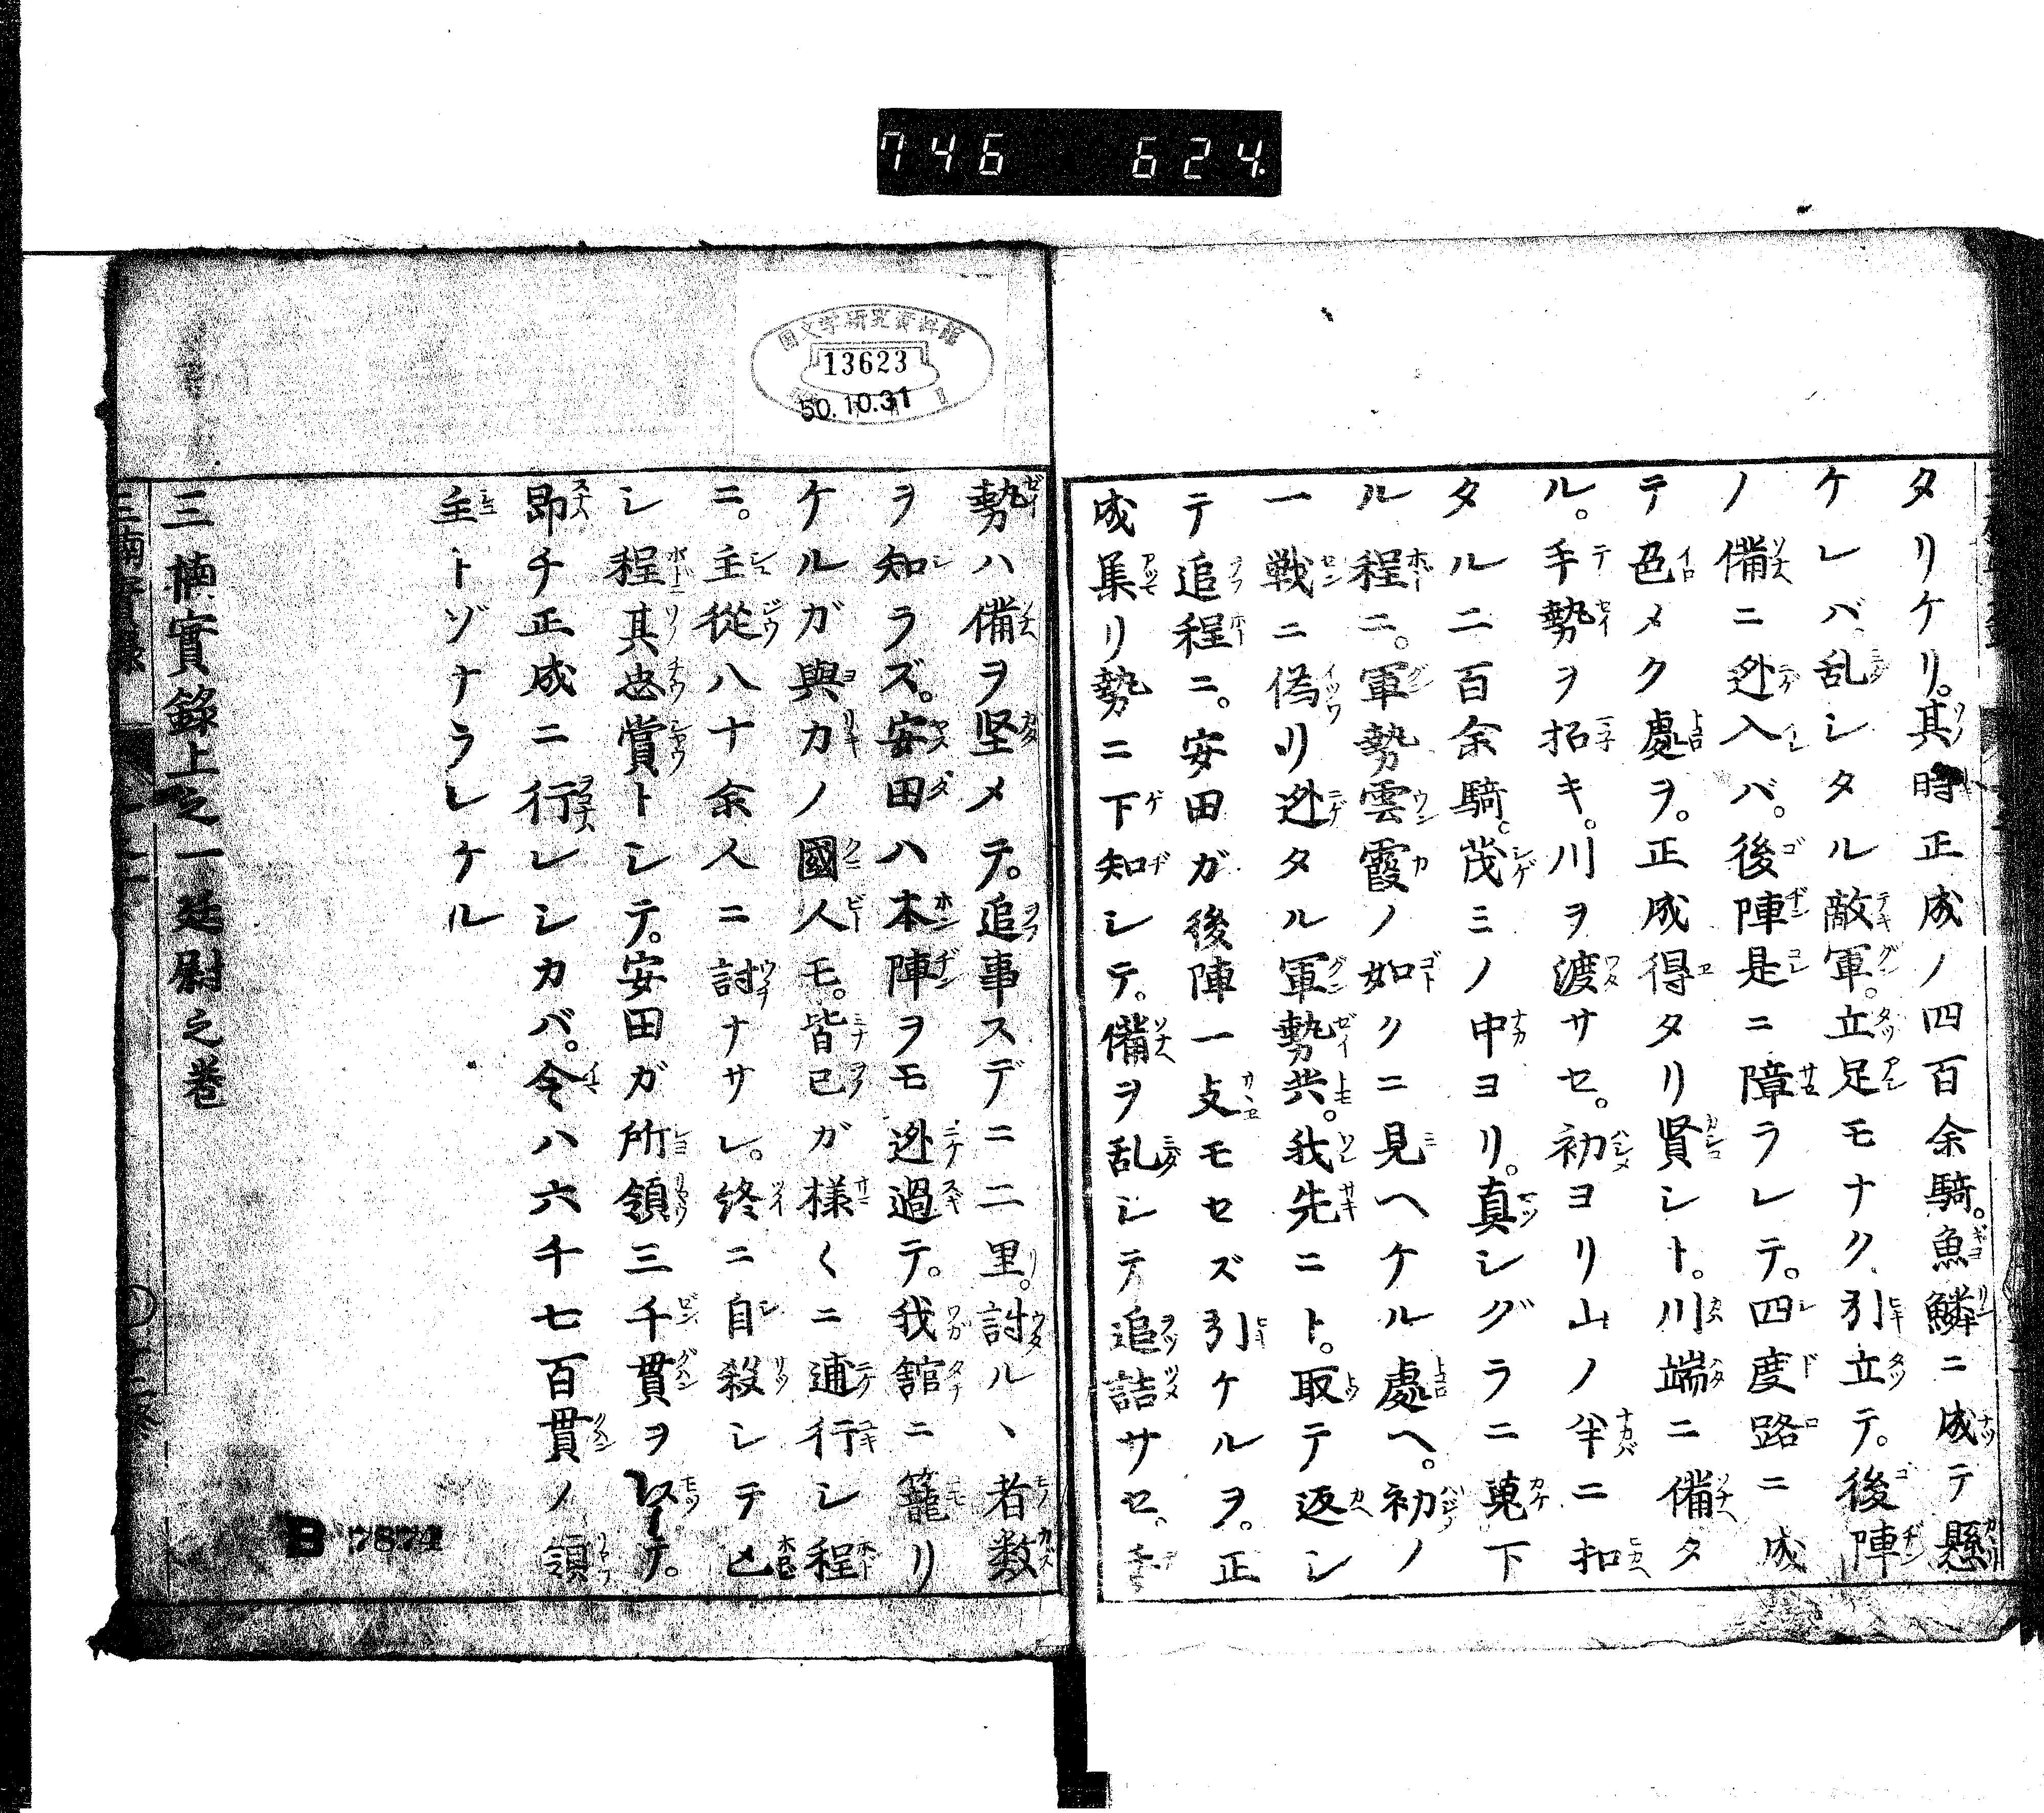 746 624.
タリケリ。其時正成ノ四百余騎。魚鱗ニ成テ懸
ケレバ。乱レタル敵軍。立足モナク引立テ。後陣
ノ備ニ迯入レバ。後陣是ニ障ラレテ。四度路ニ成
テ色メク處ヲ。正成得タリ賢シト。川端ニ備タ
ル。手勢ヲ招キ。川ヲ渡サセ。初ヨリ山ノ半ニ扣
タル二百余騎。茂ミノ中ヨリ。真シグラニ蒐下
ル程ニ。軍勢雲霞ノ如クニ見ヘケル處ヘ。初ノ
一戦ニ偽リ迯タル軍勢共。我先ニト。取テ返シ
テ追程ニ。安田ガ後陣一支モセズ引ケルヲ。正
成集リ勢ニ下知シテ。備ヲ乱シテ追詰サセ。
勢ハ備ヲ堅メテ。追事スデニ二里。討ルヽ者数
ヲ知ラズ。安田ハ本陣ヲモ迯過テ。我舘ニ籠リ
ケルガ與力ノ國人モ。皆己ガ様〱ニ逋行シ程
ニ。主從八十余人ニ討ナサレ。終ニ自殺シテ亡
シ程其忠賞トシテ。安田ガ所領三千貫ヲ以テ。
即チ正成ニ行レシカバ。今ハ六千七百貫ノ領
主トゾナラレケル
三楠實錄上之一廷尉之巻
国文学研究資料館
13623
50.10.31
B 7874